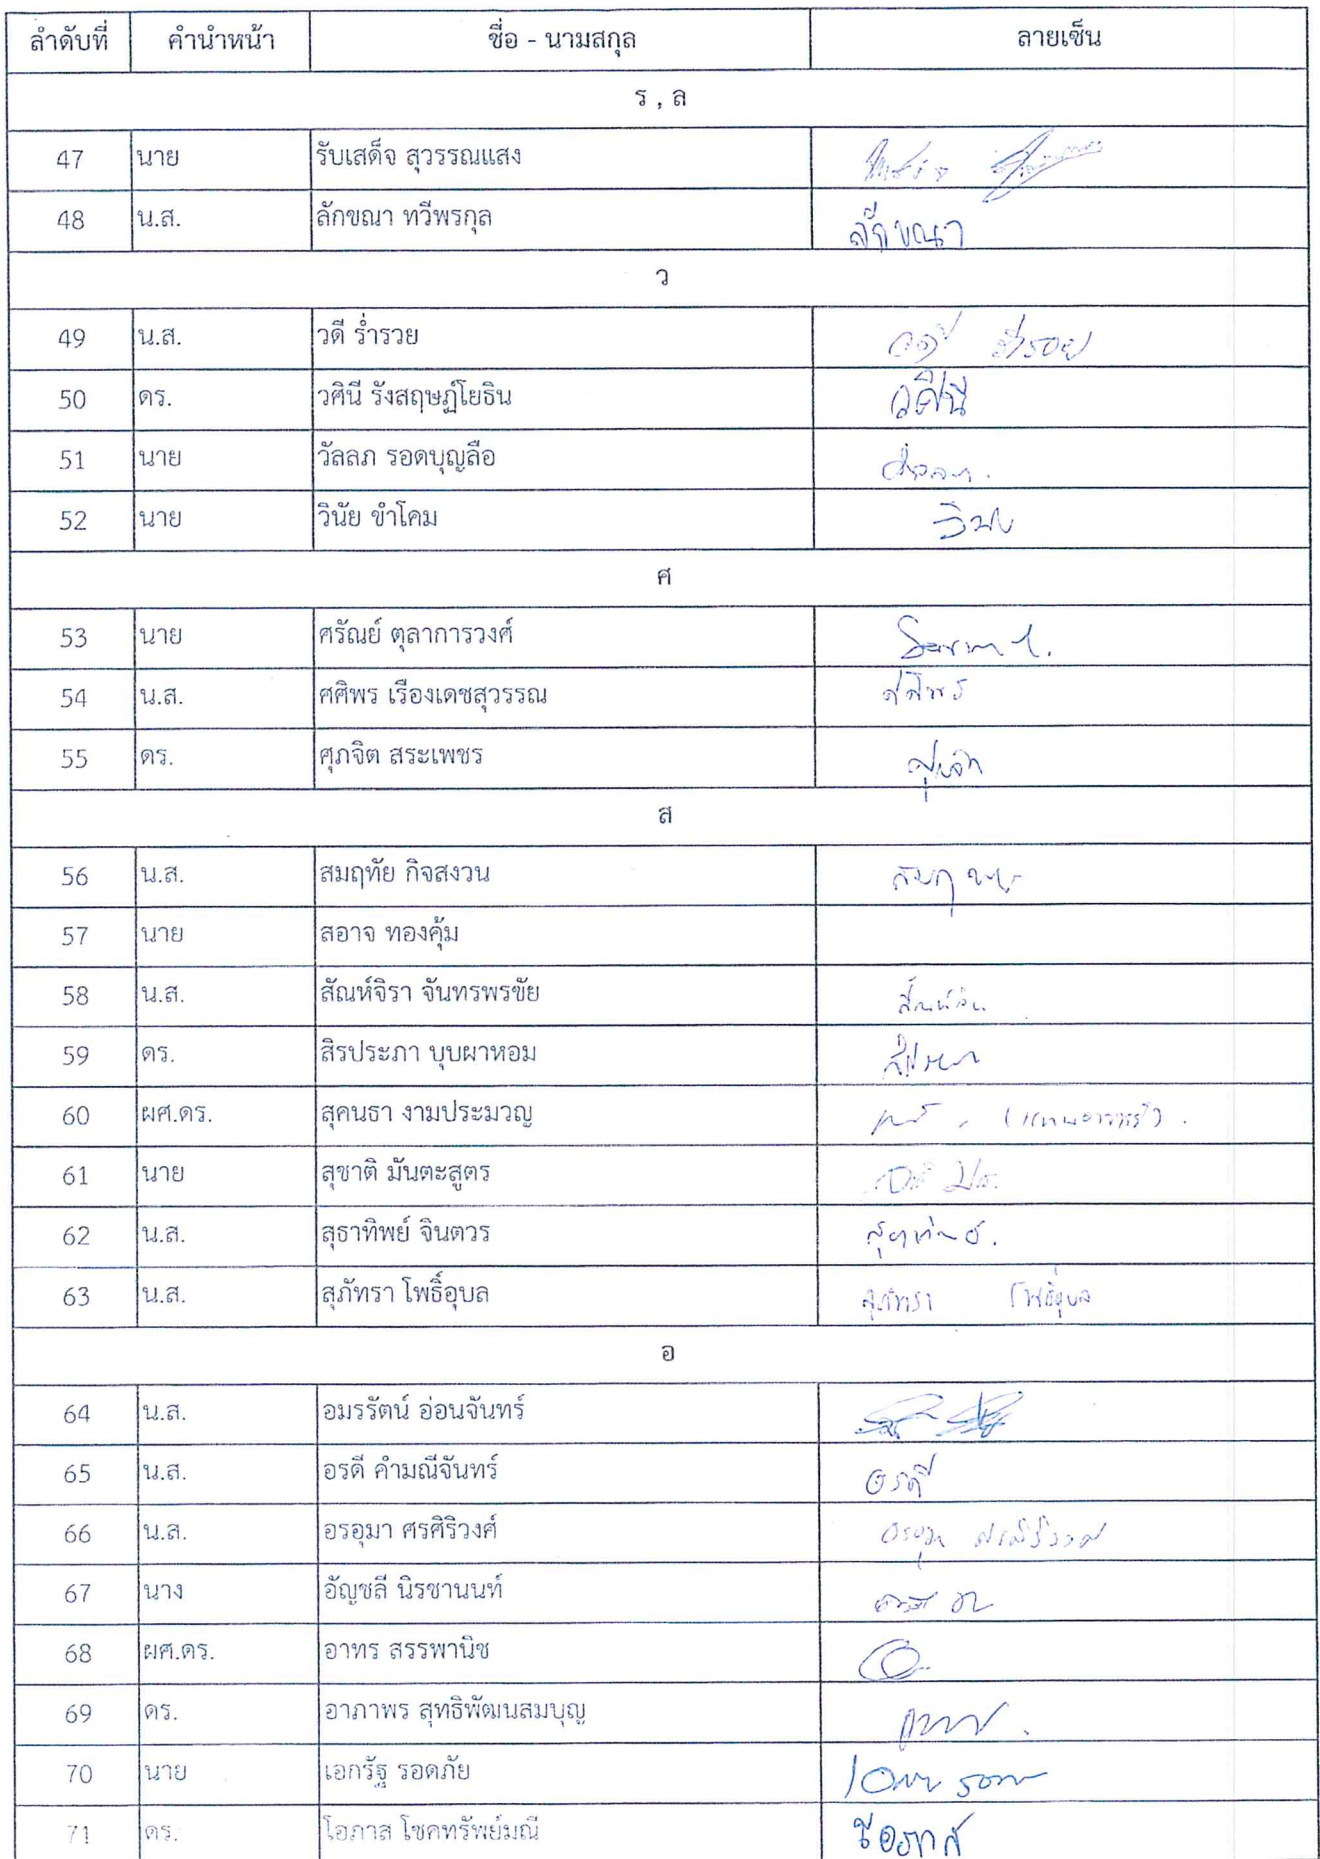 ลำดับที่ คำนำหน้า ชื่อ - นามสกุล ลายเซ็น
ร , ล
47 นาย รับเสด็จ สุวรรณแสง
48 น.ส. ลักขณา ทวีพรกุล ลักขณา
ว
49 น.ส. วดี ร่ำรวย วดี ร่ำรวย
50 ดร. วศินี รังสฤษฏ์โยธิน วศินี
51 นาย วัลลภ รอดบุญลือ
52 นาย วินัย ขำโคม วินัย
ศ
53 นาย ศรัณย์ ตุลาการวงศ์
54 น.ส. ศศิพร เรืองเดชสุวรรณ ศศิพร
55 ดร. ศุภจิต สระเพชร
ส
56 น.ส. สมฤทัย กิจสงวน
57 นาย สอาจ ทองคุ้ม
58 น.ส. สัณห์จิรา จันทรพรชัย
59 ดร. สิรประภา บุบผาหอม
60 ผศ.ดร. สุคนธา งามประมวญ
61 นาย สุชาติ มันตะสูตร
62 น.ส. สุธาทิพย์ จินตวร
63 น.ส. สุภัทรา โพธิ์อุบล สุภัทรา โพธิ์อุบล
อ
64 น.ส. อมรรัตน์ อ่อนจันทร์
65 น.ส. อรดี คำมณีจันทร์ อรดี
66 น.ส. อรอุมา ศรศิริวงศ์ อรอุมา ศรศิริวงศ์
67 นาง อัญชลี นิรชานนท์
68 ผศ.ดร. อาทร สรรพานิช
69 ดร. อาภาพร สุทธิพัฒนสมบุญ
70 นาย เอกรัฐ รอดภัย
71 ดร. โอภาส โชคทรัพย์มณี